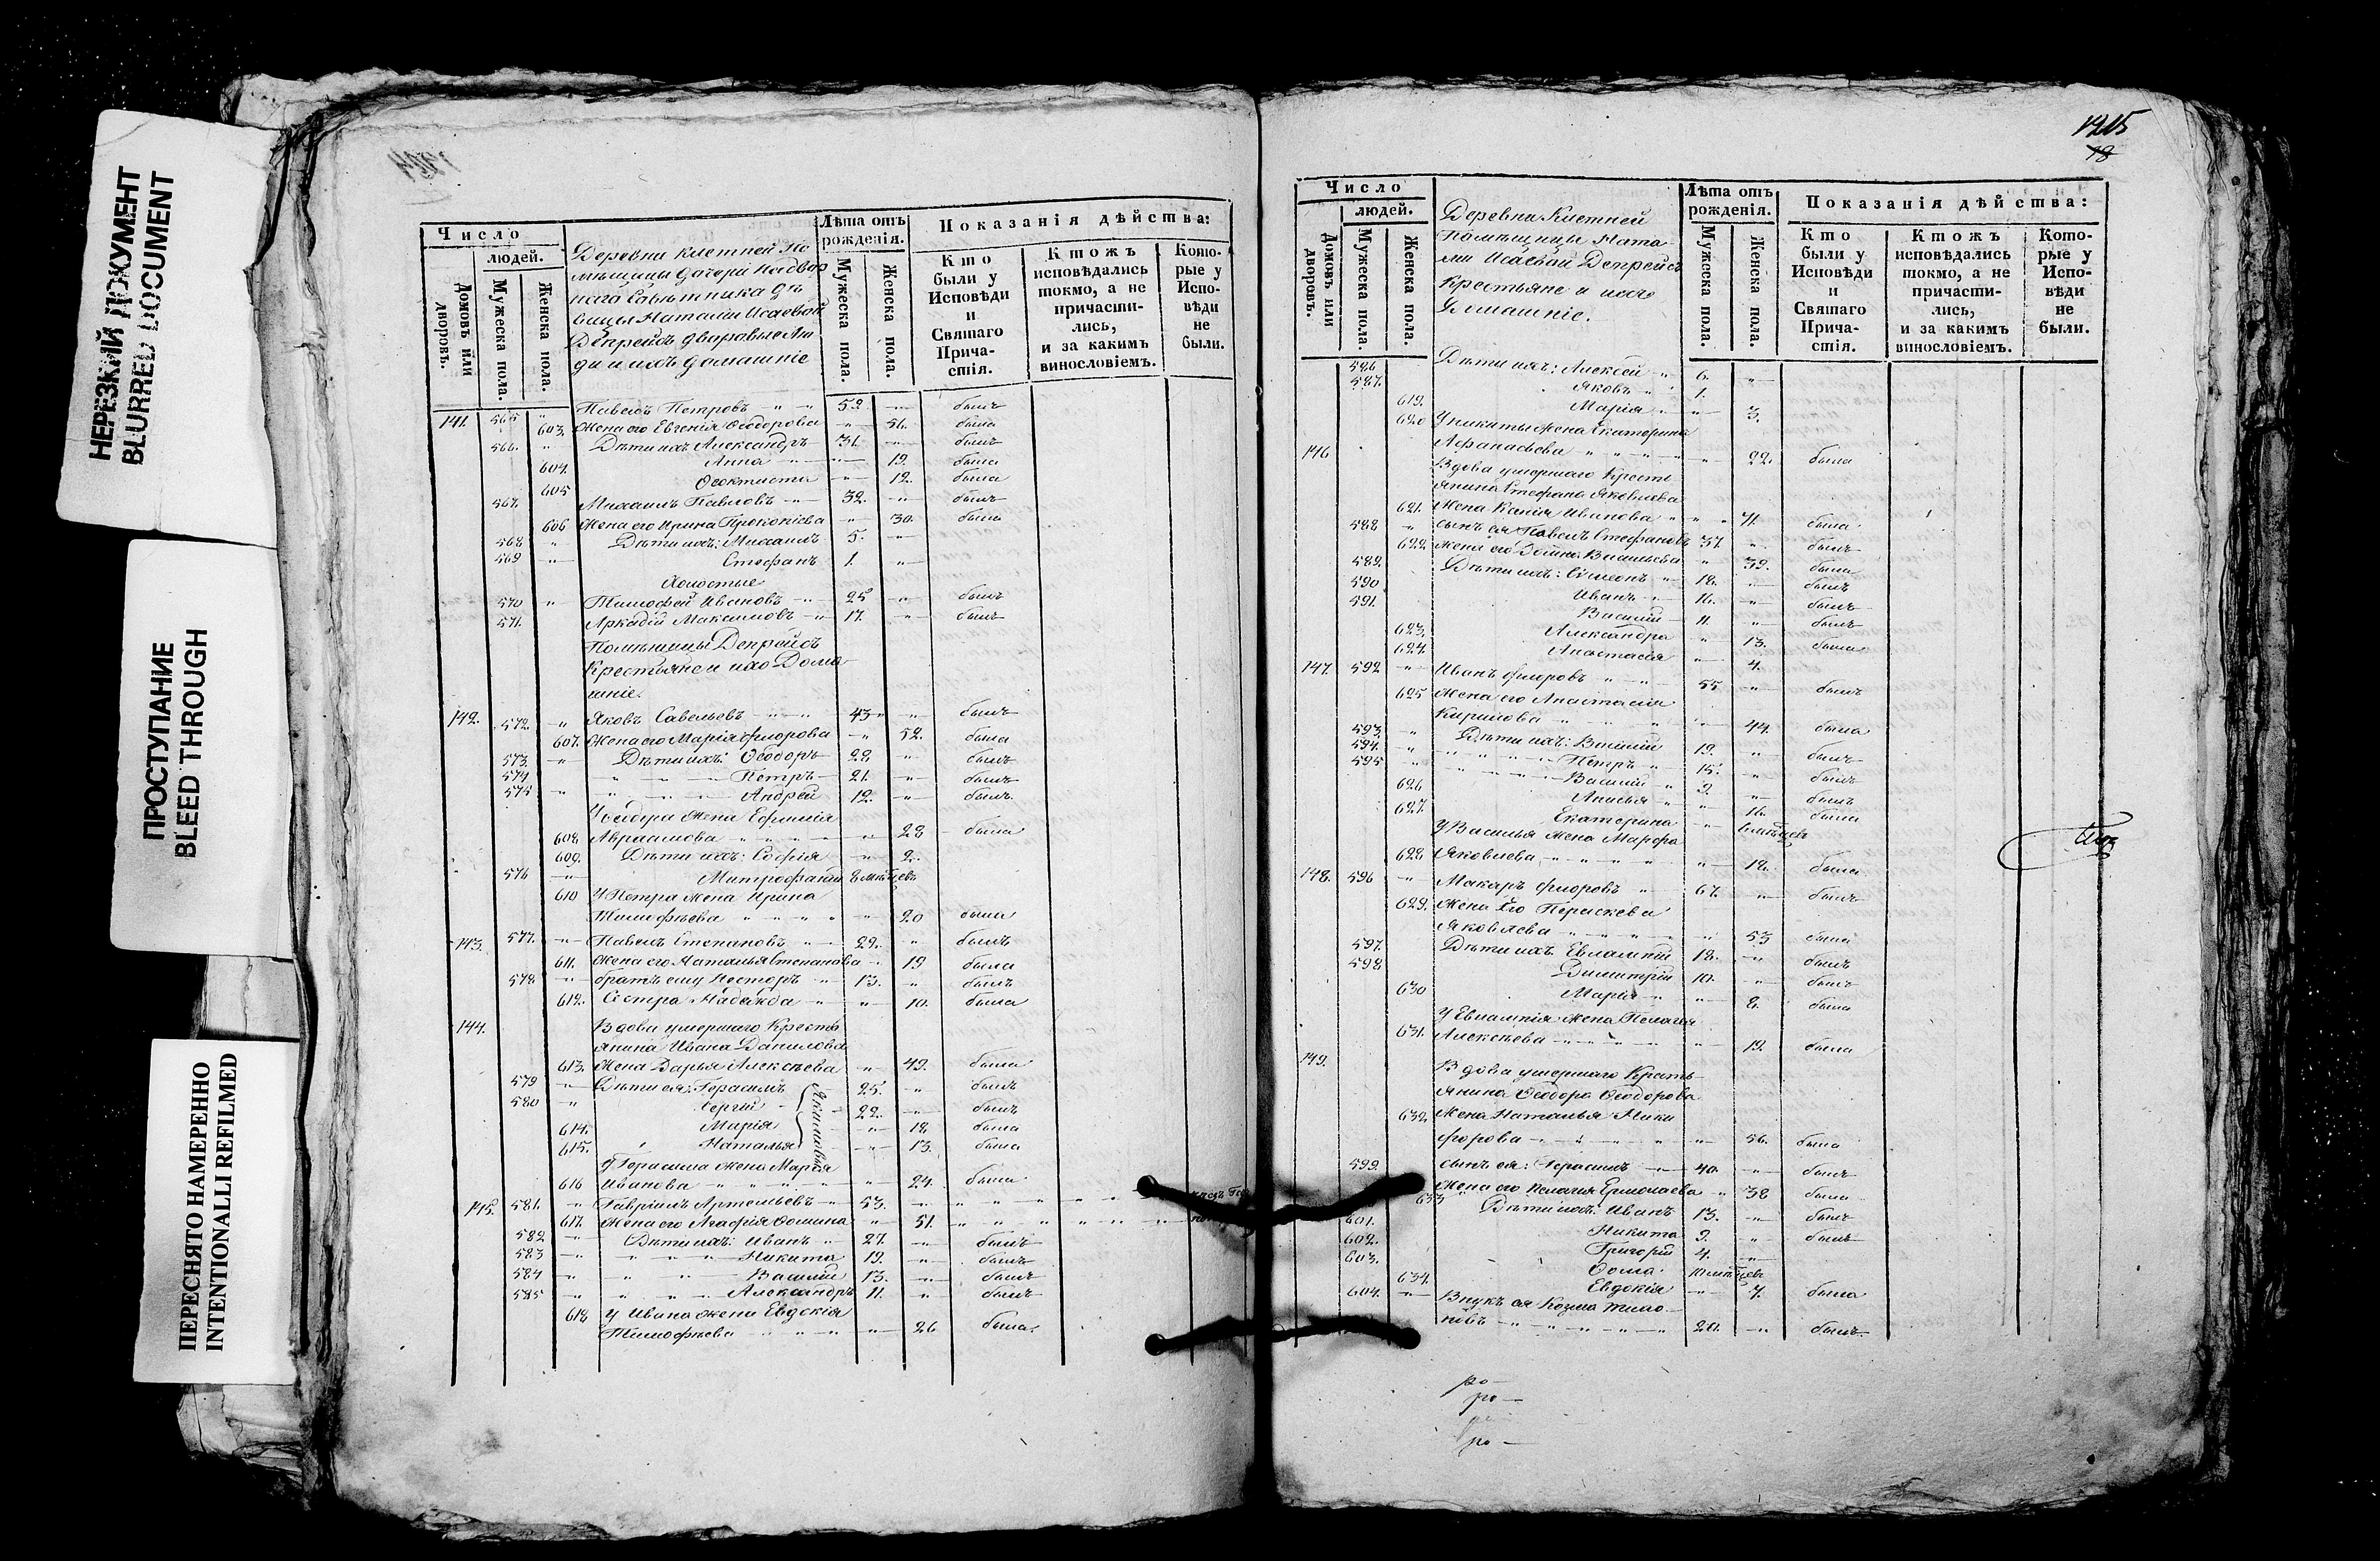 НЕРЕЗКИЙ ДОКУМЕНТ
BLURRED DOCUMENT
ПРОСТУПАНИЕ
BLEED THROUGH
ПЕРЕСНЯТО НАМЕРЕННО
INTENTIONALLI REFILMED
Число
людей.
Домовъ или дворовъ.
Мужеска пола.
Женска пола.
Деревни Клетней По
мѣщицы дочери Надвор
наго Совѣтника Дѣ
вицы Наталіи Исаевой
Депрейсъ дворовые Лю
ди и ихъ домашніе
Лѣта отъ рожденія.
Мужеска пола.
Женска пола.
Показанія дѣйства:
Кто были у Исповѣди и Святаго Прича- стія.
Ктожъ исповѣдались токмо, а не причасти- лись, и за какимъ винословіемъ.
Кото- рые у Испо- вѣди не были.
141. 565 Павелъ Петровъ 59. былъ
603. Жена его Евгенія Ѳеодорова 56. была
566. Дѣти ихъ Александръ 31. былъ
604. Анна 19. была
605 Ѳеоктиста 12. была
567. Михаилъ Павловъ 32. былъ
606 Жена его Ирина Прокопіева 30. была
568 Дѣти ихъ: Михаилъ 5.
569 Стефанъ 1.
Холостые
570 Тимофей Ивановъ 25 былъ
571. Аркадій Максимовъ 17. былъ
Помѣщицы Депрейсъ
Крестьяне и ихъ Дома
шніе.
142. 572. Яковъ Савельевъ 43 былъ
607. Жена его Марія Флорова 52. была
573. Дѣти ихъ: Ѳеодоръ 22 былъ
574 Петръ 21. былъ
575 Андрей 12. былъ
У Ѳеодора жена Ефимія
608 Авраамова 23 была
609. Дѣти ихъ: Софія 2.
576 Митрофанъ 8 мѣсяцевъ
610 У Петра жена Ирина
Тимофѣева 20 была
143. 577. Павелъ Степановъ 22. былъ
611. Жена его Наталья Степанова 19 была
578 братъ ему Несторъ 13. былъ
612. Сестра Надежда 10. была
144. Вдова умершаго Кресть
янина Ивана Данилова
613. Жена Дарья Алексѣева 49. была
579 Дѣти ея: Герасимъ 25. былъ
580 Сергій 22. былъ
614. Марія 18 была
615. Наталья 13. была
У Герасима жена Марія
616 Иванова 24. была
145. 581. Гавріилъ Артемьевъ 53.
617. Жена его Агафія Ѳомина 51.
582 Дѣти ихъ: Иванъ 27. былъ
583 Никита 19. былъ
584 Василій 13. былъ
585 Александръ 11. былъ
618 У Ивана жена Евдокія
Тимофѣева 26 была.
1215
18
Число
людей.
Домовъ или дворовъ.
Мужеска пола.
Женска пола.
Деревни Клетней
Помѣщицы Ната
ліи Исаевой Депрейсъ
Крестьяне и ихъ
Домашніе.
Лѣта отъ рожденія.
Мужеска пола.
Женска пола.
Показанія дѣйства:
Кто были у Исповѣди и Святаго Прича- стія.
Ктожъ исповѣдались токмо, а не причасти- лись, и за какимъ винословіемъ.
Кото- рые у Испо- вѣди не были.
586 Дѣти ихъ: Алексей 6.
587. Яковъ 1.
619. Марія 3.
620 У Никиты жена Екатерина
146 Афанасьева 22. была
Вдова умершаго Кресть
янина Стефана Яковлева
621. Жена Иванова 71. была
588 сынъ ея Павелъ Стефановъ 37. былъ
622 жена его Васильева 39. была
589. Дѣти ихъ: Симеонъ 18. былъ
590 Иванъ 16. былъ
591. Василій 11. былъ
623. Александра 13. была
624. Анастасія 4.
147. 592 Иванъ Флоровъ 55 былъ
625 Жена его Анастасія
Кирилова 44. была
593. Дѣти ихъ: Василій 19. былъ
594. Петръ 15. былъ
595 Василій 9. былъ
626 Анисья 16. была
627. Екатерина 6 мѣсяцев
У Василья жена Марфа
628 Яковлева 18. была
148. 596 Макаръ Флоровъ 67. былъ
629. Жена Его Параскева
Яковлева 53 была
597. Дѣти ихъ Евлампій 18. былъ
598 Димитрій 10. былъ
630 Марія 8. была
У Евлампія жена Пелагія
631. Алексѣева 19. была
149. Вдова умершаго Кресть
янина Ѳеодора Ѳеодорова
632. Жена Наталья Ники
форова 56. была
599. сынъ ея: Герасимъ 40. былъ
633 Жена его Пелагія Ермолаева 38 была
Дѣти ихъ: Иванъ 13. былъ
601. Никита 9. былъ
602. Григорій 4.
603. Ѳома 10 мѣсяцевъ
634. Евдокія 7. была
604. Внукъ ея Козма Тимо
20. былъ
ро
ро
ро